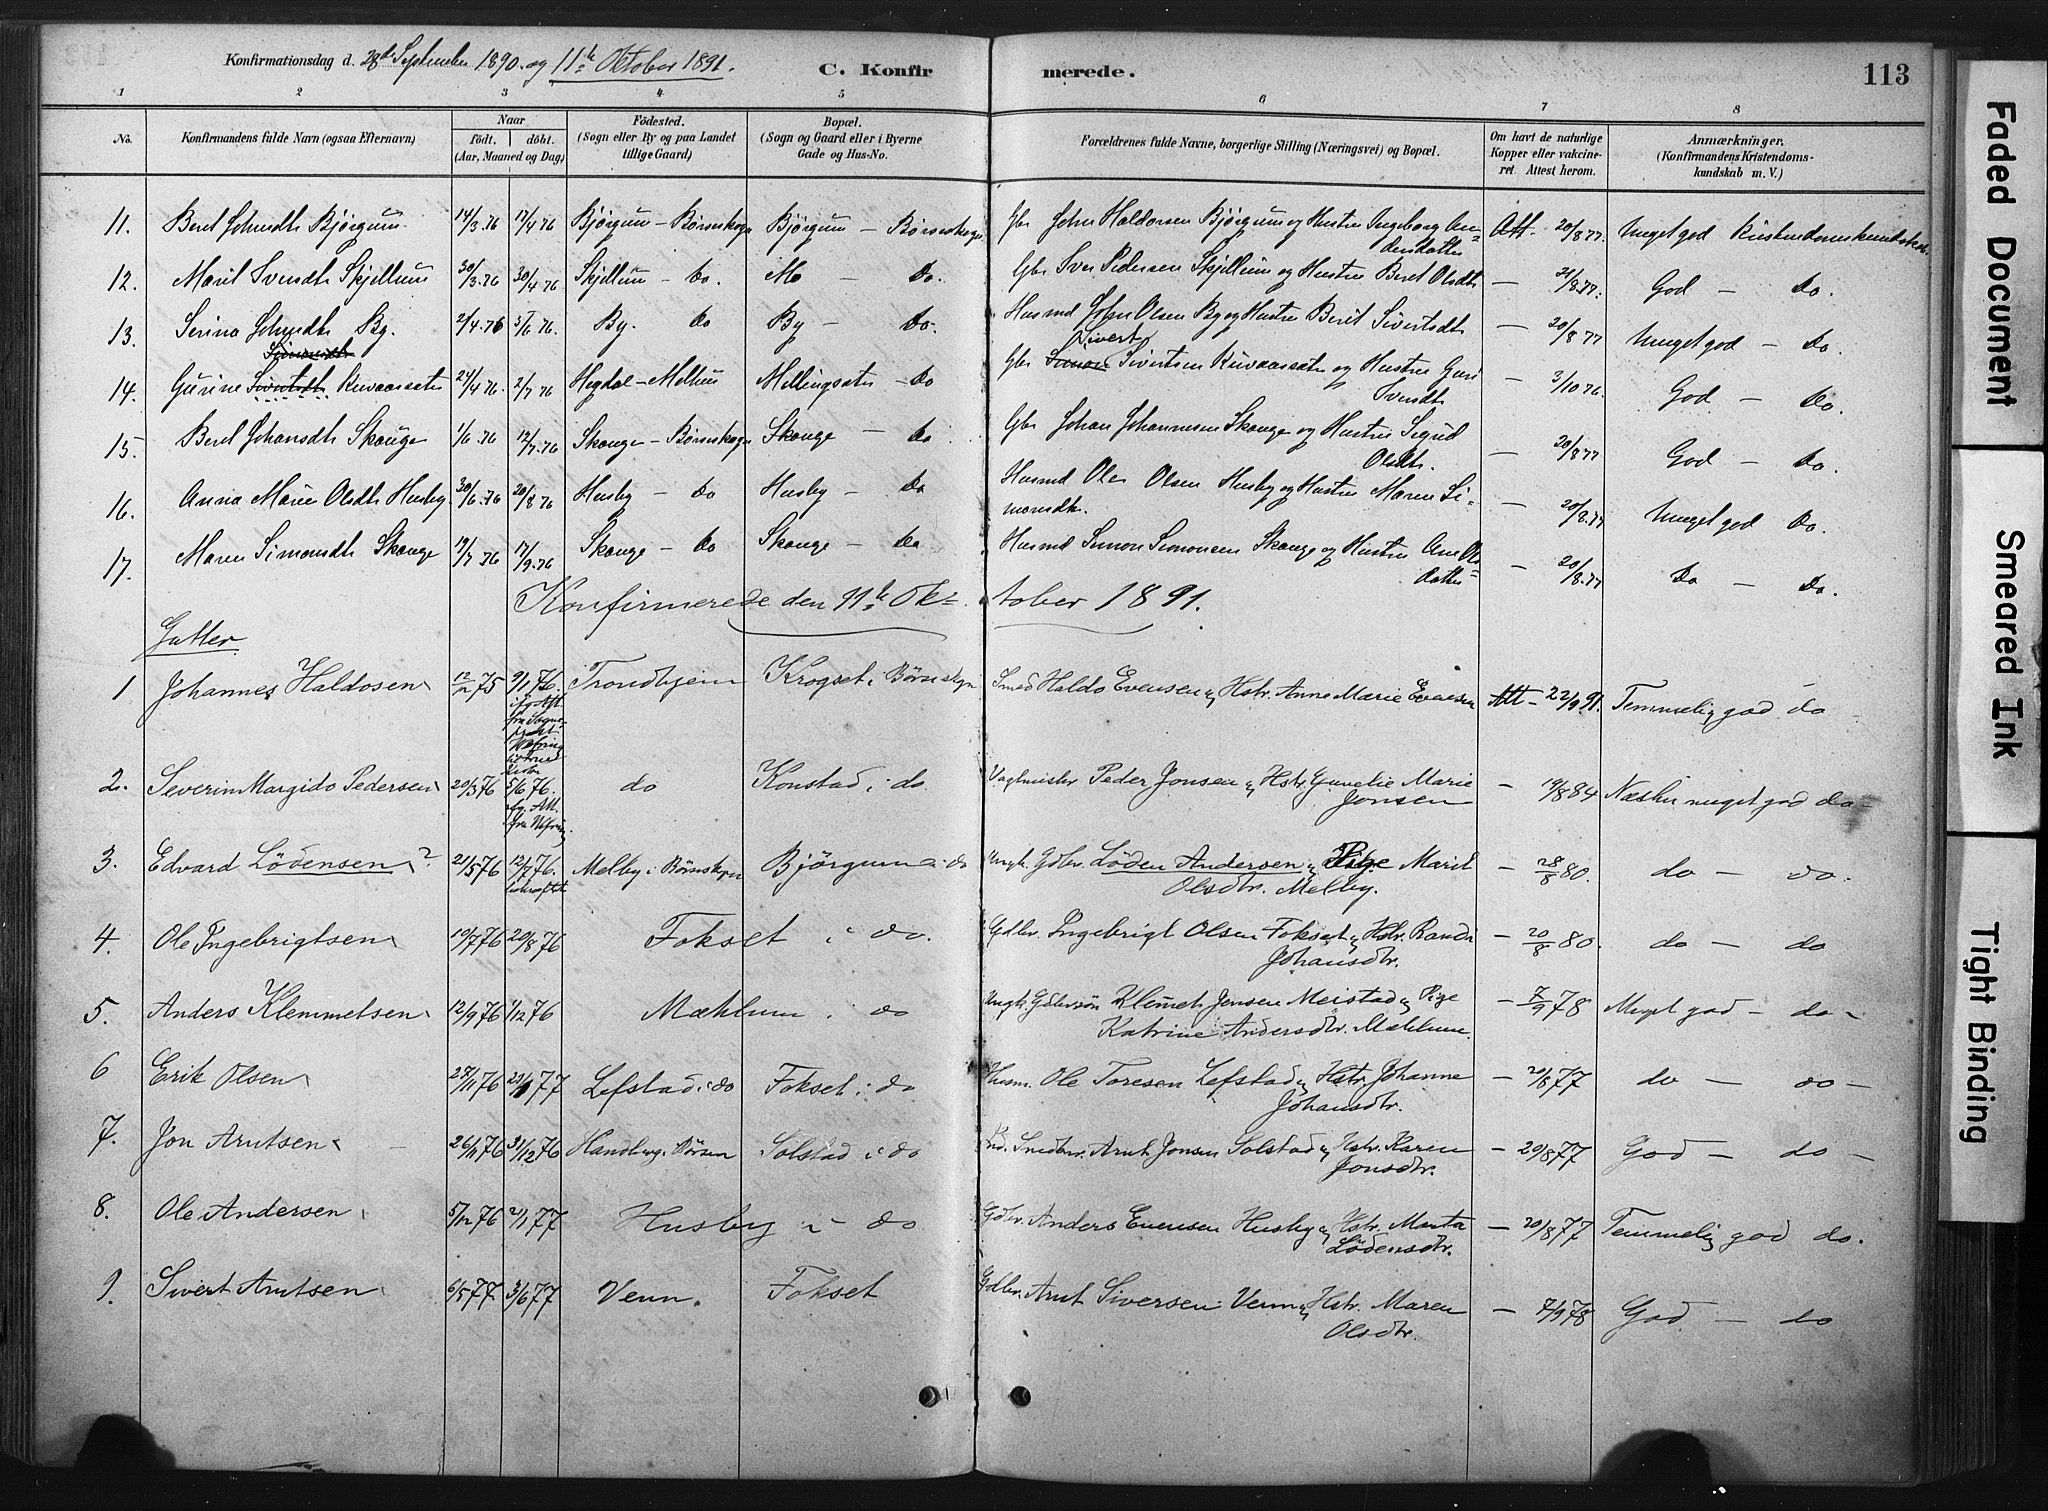 Konfirmationsdag d. 28de September 1890 og 11te Oktober 1891. C. Konfirmerede. 113
1 2 3 4 5 6 7 8
No. Konfirmandens fulde Navn (ogsaa Efternavn) Naar født. døbt. (Aar, Maaned og Dag) Födested. (Sogn eller By og paa Landet tillige Gaard) Bopæl. (Sogn og Gaard eller i Byerne Gade og Hus-No. Forældrenes fulde Navne, borgerlige Stilling (Næringsvei) og Bopæl. Om havt de naturlige Kopper eller vakcineret. Attest herom. Anmærkninger. (Konfirmandens Kristendomskundskab m. V.)
11. Beret Johnsdt Bjørgum 14/3.76 17/4 76 Bjørgum – Børseskogn Bjørgum – Børseskogn Gbr John Haldorsen Bjørgum og Hustru Ingeborg Andersdatter Att. 20/8 77. Meget god Kristendomskundskab
12. Marit Svendt Skjellum 30/3.76 30/4 76 Skjellum – Do. Mo – Do. Gbr Sven Pedersen Skjellum og Hustru Beret Olsdt – 21/8.77. God – Do.
13. Serina Johnsdt By. 2/4.76 5/6 76. By. Do By – Do. Husmd John Olsen By og Hustru Berit Sivertsdt – 20/8 77 Meget god – Do.
14. Gurine Sivertdt Simonsdt Kuvaassæter 24/4 76. 2/7 76 Hegdal – Melhus Mellingsæter – Do Gbr Simon Sivert Sivertsen Kuvaassæter og Hustru Guri Svendt – 3/10 76. God – Do.
15. Beret Johansdt Skauge 1/6 76 12/7.76 Skauge – Børseskogn Skauge – Do Gbr Johan Johannesen Skauge og Hustru Sigrid Olsdt. – 20/8 77 God – Do.
16. Anna Maren Olsdt Husby 30/6.76 20/8 76 Husby – Do Husby – Do Husmd Ole Olsen Husby og Hustru Maren Simonsdt. – 20/8.77 Meget god Do.
17. Maren Simonsdt Skauge 19/7 76 17/9.76 Skauge – Do Skauge – Do Husmd Simon Simonsen Skauge og Hustru Ane Olsdatter – 20/8.77 Do – Do.
Konfirmerede den 11te Oktober 1891.
Gutter.
1 Johannes Haldosen 12/12 75 9/1 76. Trondhjem Krogset i Børseskgn Smed Haldo Evensen og Hstr. Anne Marie Evensen Att – 22/9 91. Temmelig god do
2. Severin Margido Pedersen 20/3 76 5/6 76. do Konstad i do. Vagtmester Peder Jonsen og Hstr. Gunelie Marie Jonsen – 19/8 84 Næsten meget god do –
3. Edvard Lödensen? 21/5 76 12/7 76. Melby i Børseskgn Bjørgum i do Ungk. Gdbr. Löden Andersen og Pige Marit Olsdtr. Melby. – 28/8 80. do – do.
4 Ole Ingebrigtsen 19/7 76 20/8 76 Fokset i do. Gdbr. Ingebrigt Olsen Fokset og Hstr. Randi Johansdtr. – 20/8 80. do – do
5. Anders Klemmetsen 12/9 76 1/12 76 Mæhlum i do Ungk. Gdbrsön Klemet Jensen Meistad og Pige Katrine Andersdtr. Mæhlum. – 7/9 78 Meget god – do –
6 Erik Olsen 28/11 76 77 Lefstad i do Fokset i do Husm. Ole Toresen Lefstad og Hstr. Johanne Johansdtr. – 21/8 77 do – do –
7. Jon Arntsen 26/11 76 31/12 76 Handberg i Børsen Solstad i do Arnt Jonsen Solstad og Hstr. Karen Jonsdtr. – 20/8 77 God – do –
8. Ole Andersen 5/12 76 2/1 77 Husby i – do Gdbr. Anders Evensen Husby og Hstr. Marta Lödensdtr. – 20/8 77 Temmelig god do.
9. Sivert Arntsen 6/5 77. 3/6 77 Venn. Fokset Gdbr. Arnt Siversen Venn og Hstr. Maren Olsdtr. – 7/9 78 God – do
Faded Document
Smeared Ink
Tight Binding